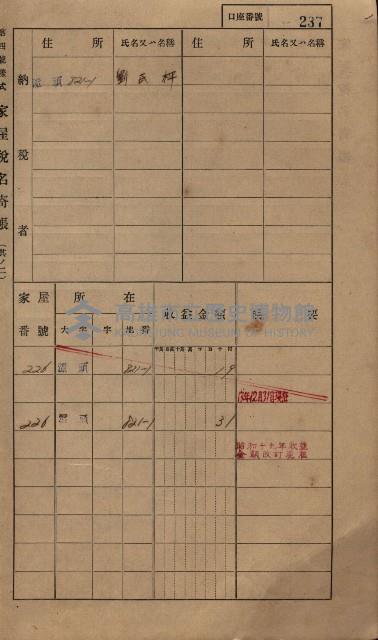 口座番號 237
第四號樣式
家屋稅名寄帳
(其ノ二)
納稅者
住所 氏名又ハ名稱 住所 氏名又ハ名稱
頭 821-1
家屋番號 所在 收益金額 摘要
大字 字 地番
226 頭 821-1 19
226 頭 821-1 31
昭和十九年收益
金額改訂
高雄市立歷史博物館
KAOHSIUNG MUSEUM OF HISTORY